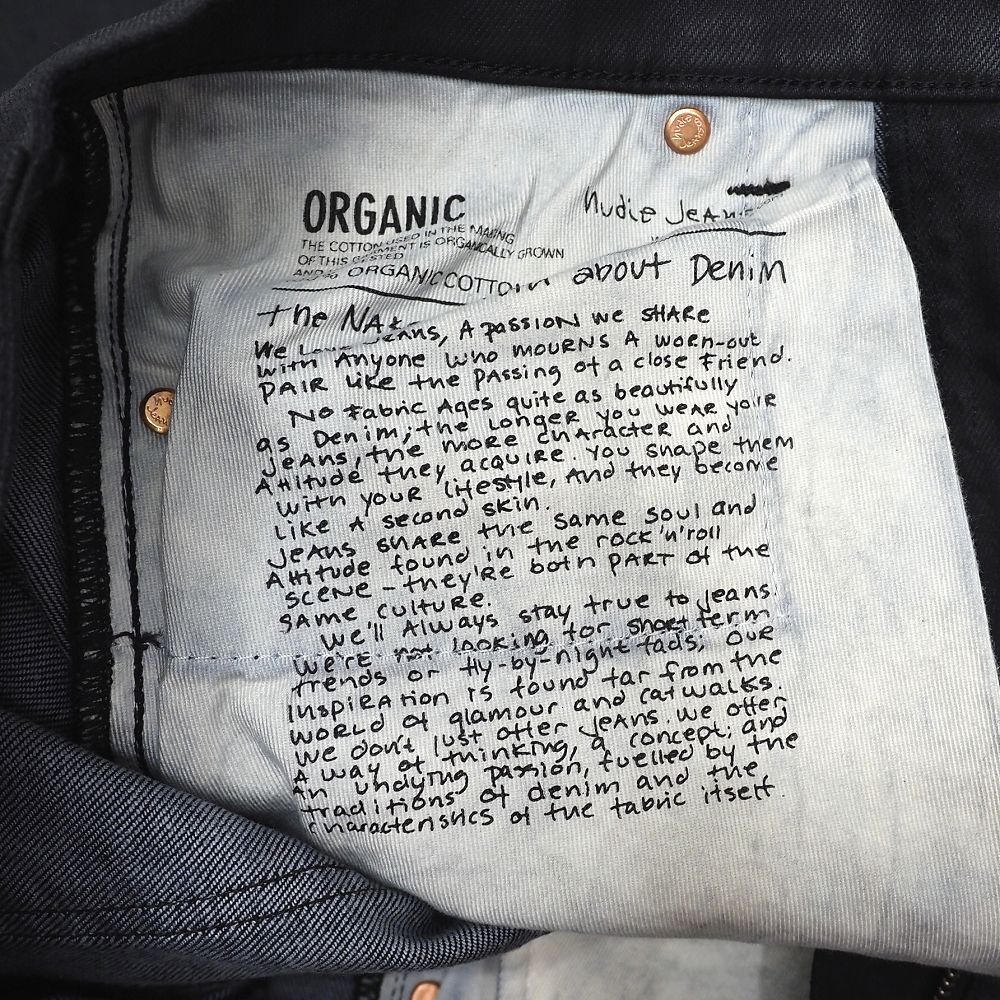 nudie Jeans
ORGANIC
nudie Jeans
THE COTTON USED IN THE MAKING
OF THIS GARMENT IS ORGANICALLY GROWN
AND
ORGANIC COTTON
The Naked about Denim
We Love Jeans, A passion we share
with Anyone who mourns A worn-out
pair like the passing of a close friend.
No fabric Ages quite as beautifully
as Denim; the longer you wear your
jeans, the more character and
Attitude they acquire. You shape them
with your lifestyle, And they become
like A second skin.
Jeans share the same soul and
Attitude found in the rock'n'roll
scene – they're both part of the
same culture.
We'll Always stay true to jeans.
We're not looking for short term
trends or fly-by-night fads; our
inspiration is found far from the
world of glamour and catwalks.
We don't just offer jeans. We offer
A way of thinking, a concept; and
An undying passion, fuelled by the
traditions of denim and the
characteristics of the fabric itself.